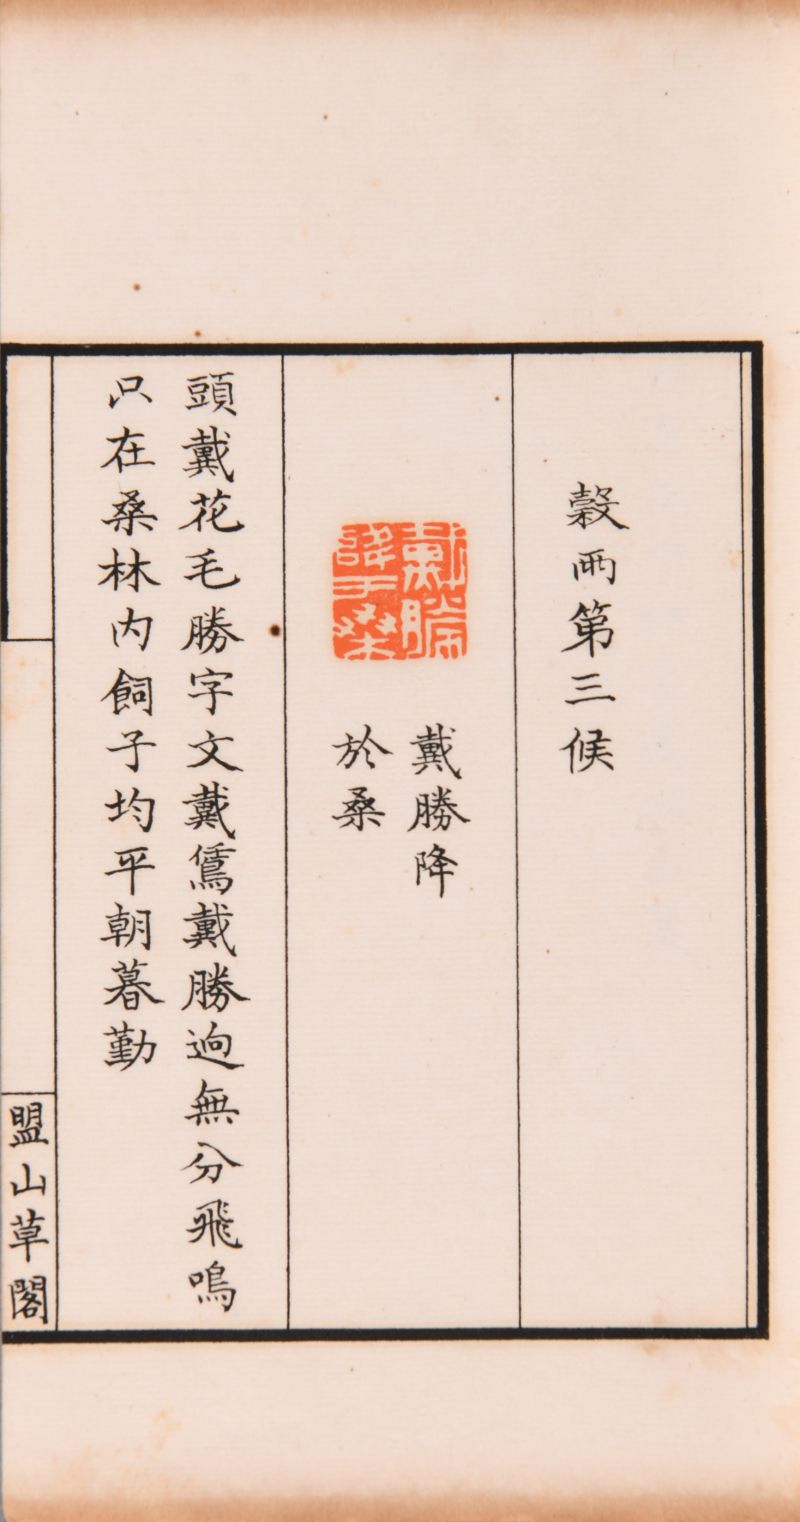 穀雨第三候
戴勝降于桑
戴勝降
於桑
頭戴花毛勝字文戴鵀戴勝逈無分飛鳴
只在桑林内飼子均平朝暮勤
盟山草閣